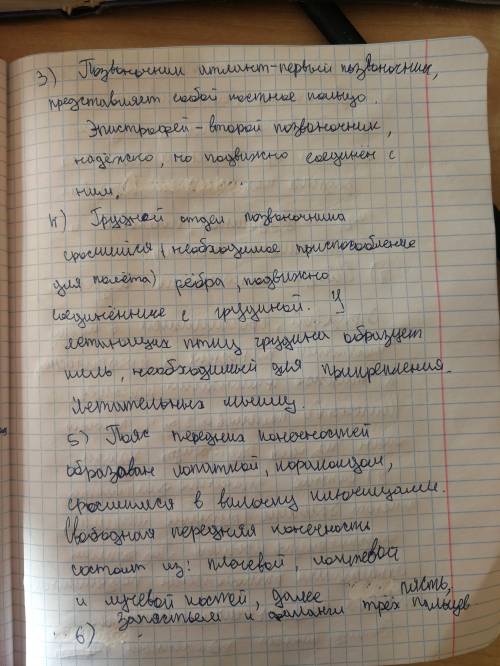 3) Позвоночник атлант-первый позвоночник,
представляет собой костное кольцо.
Эпистрофей - второй позвоночник,
надёжно, но подвижно соединён с
ним.
4) Грудной отдел позвоночника
сросшийся (необходимое приспособление
для полёта) рёбра, подвижно
соединённые с грудиной. У
летающих птиц грудина образует
киль, необходимый для прикрепления
летательных мышц.
5) Пояс передних конечностей
образован лопаткой, коракоидом,
сросшимся в вилочку ключицами.
Свободная передняя конечность
состоит из: плечевой, локтевой
и лучевой костей, далее пясть,
запястьем и фаланги трёх пальцев
6)